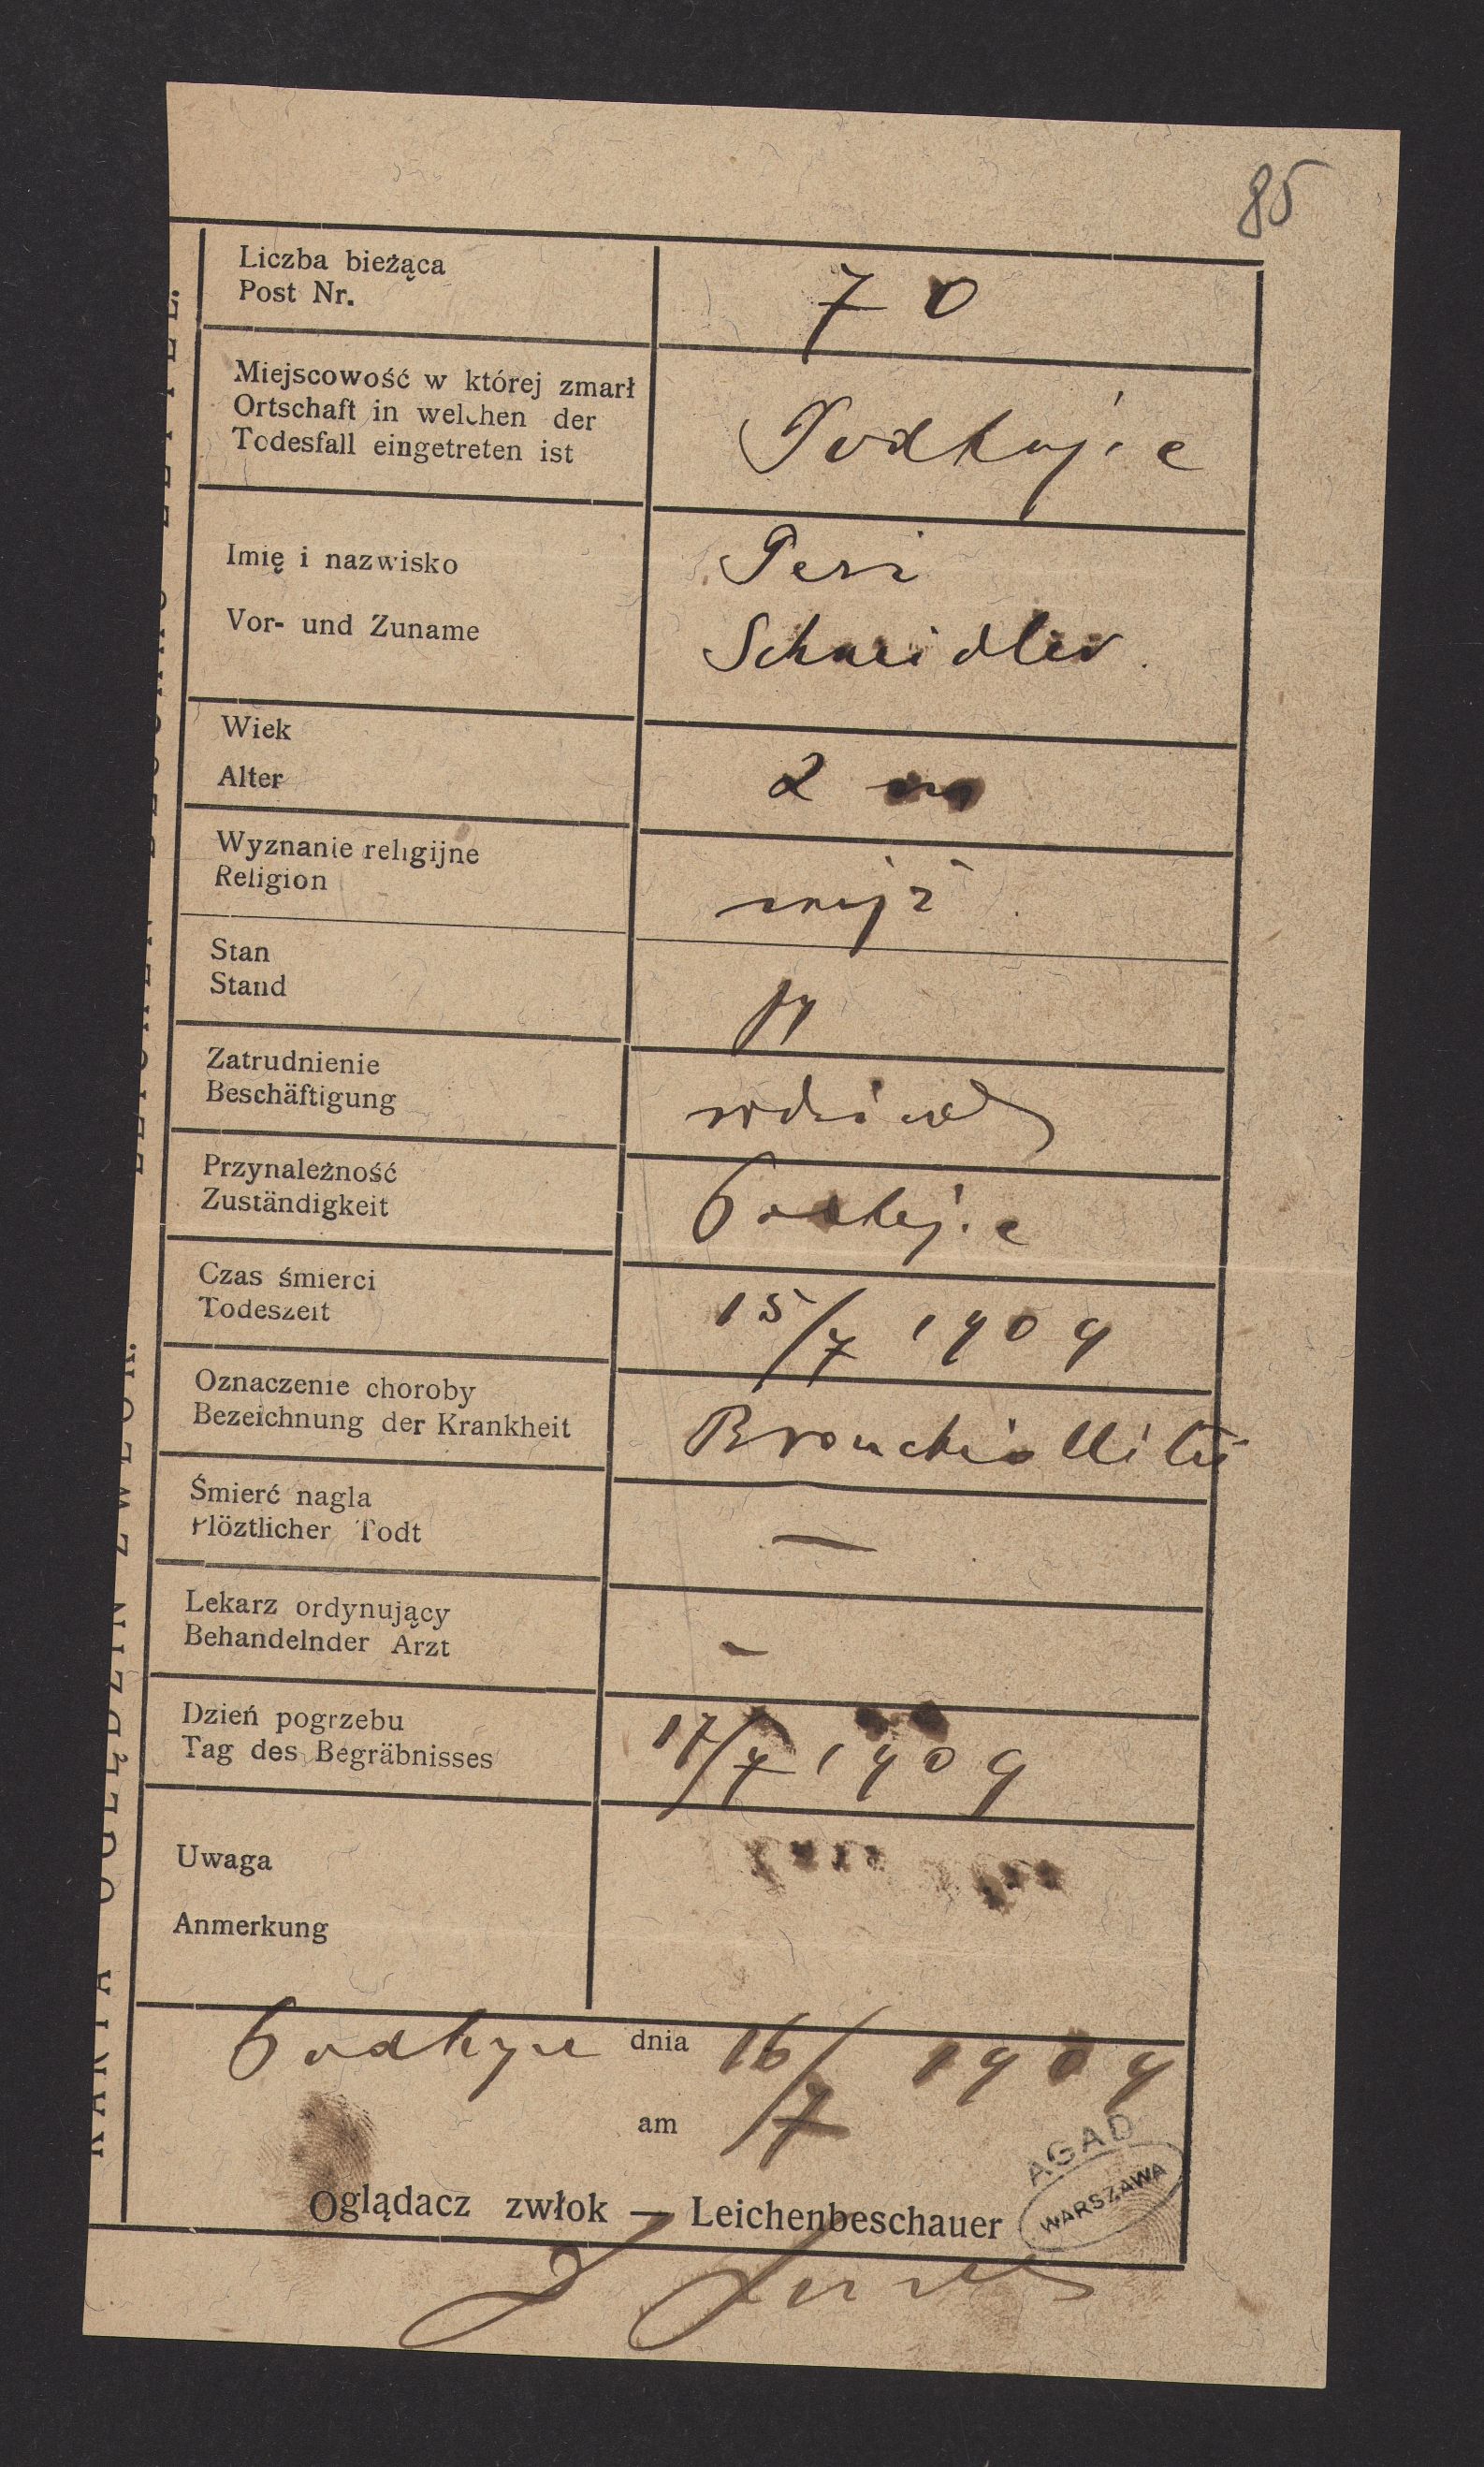 85
Liczba bieżąca
Post Nr.
70
Miejscowość w której zmarł
Ortschaft in welchen der
Todesfall eingetreten ist
Podhajce
Imię i nazwisko
Vor- und Zuname
Peri
Schneidler
Wiek
Alter
2 m
Wyznanie religijne
Religion
mojż
Stan
Stand
Zatrudnienie
Beschäftigung
Przynależność
Zuständigkeit
Podhajce
Czas śmierci
Todeszeit
15/7 1909
Oznaczenie choroby
Bezeichnung der Krankheit
Bronchiollitis
Śmierć nagla
Plöztlicher Todt
—
Lekarz ordynujący
Behandelnder Arzt
-
Dzień pogrzebu
Tag des Begräbnisses
17/7 1909
Uwaga
Anmerkung
Podhajce dnia 16/7 1909
am
Oglądacz zwłok — Leichenbeschauer
AGAD
WARSZAWA
KARTA OGLĘDZIN ZWŁOK.